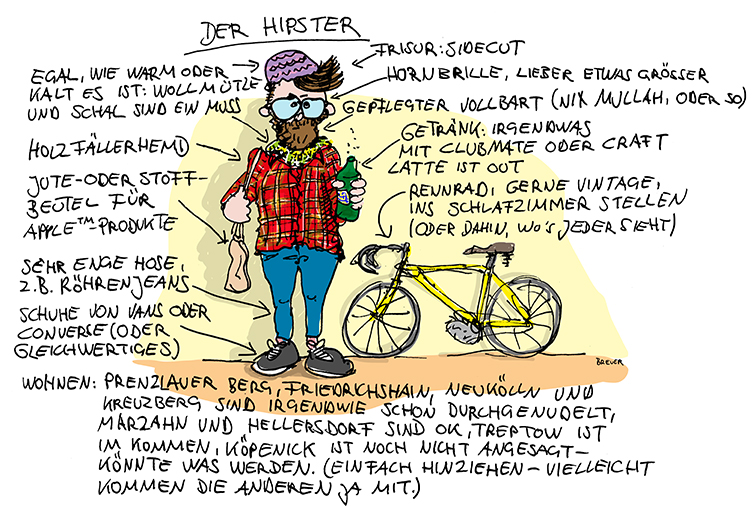 DER HIPSTER
EGAL, WIE WARM ODER
KALT ES IST: WOLLMÜTZE
UND SCHAL SIND EIN MUSS
HOLZFÄLLERHEMD
JUTE- ODER STOFF-
BEUTEL FÜR
APPLE™-PRODUKTE
SEHR ENGE HOSE,
Z.B. RÖHRENJEANS
SCHUHE VON VANS ODER
CONVERSE (ODER
GLEICHWERTIGES)
FRISUR: SIDECUT
HORNBRILLE, LIEBER ETWAS GRÖSSER
GEPFLEGTER VOLLBART (NIX MULLAH, ODER SO)
GETRÄNK: IRGENDWAS
MIT CLUBMATE ODER CRAFT
LATTE IST OUT
RENNRAD, GERNE VINTAGE,
INS SCHLAFZIMMER STELLEN
(ODER DAHIN, WO'S JEDER SIEHT)
BREUER
WOHNEN: PRENZLAUER BERG, FRIEDRICHSHAIN, NEUKÖLLN UND
KREUZBERG SIND IRGENDWIE SCHON DURCHGENUDELT,
MARZAHN UND HELLERSDORF SIND OK, TREPTOW IST
IM KOMMEN, KÖPENICK IST NOCH NICHT ANGESAGT-
KÖNNTE WAS WERDEN. (EINFACH HINZIEHEN - VIELLEICHT
KOMMEN DIE ANDEREN JA MIT.)